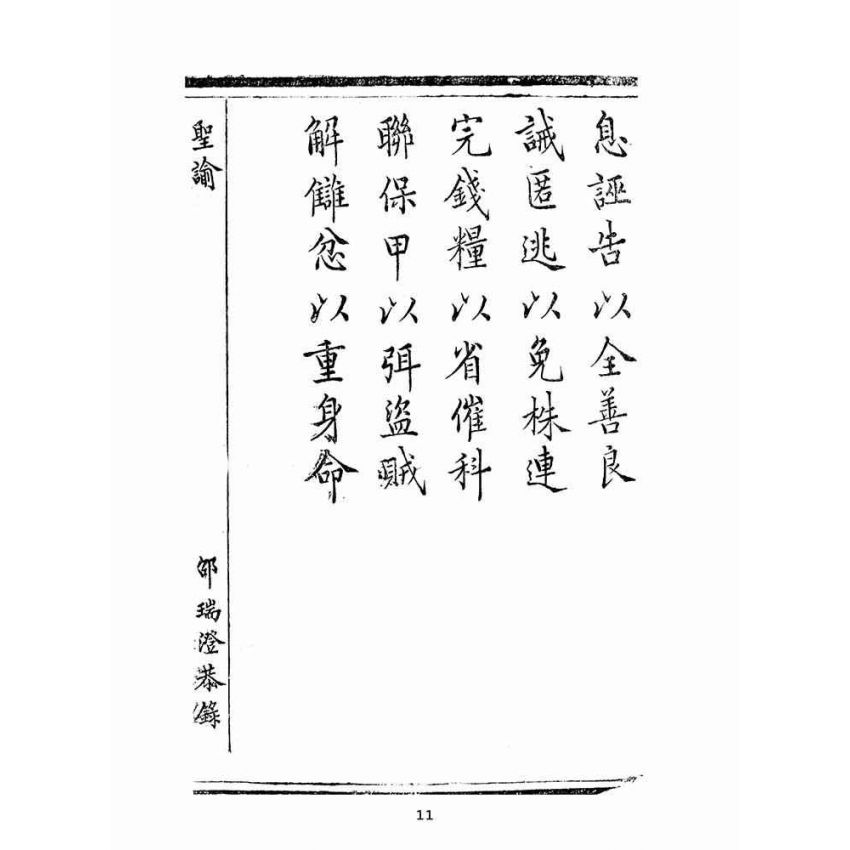 息誣告以全善良
誡匿逃以免株連
完錢糧以省催科
聯保甲以弭盜賊
解讎忿以重身命
聖諭
邵瑞澄恭錄
11